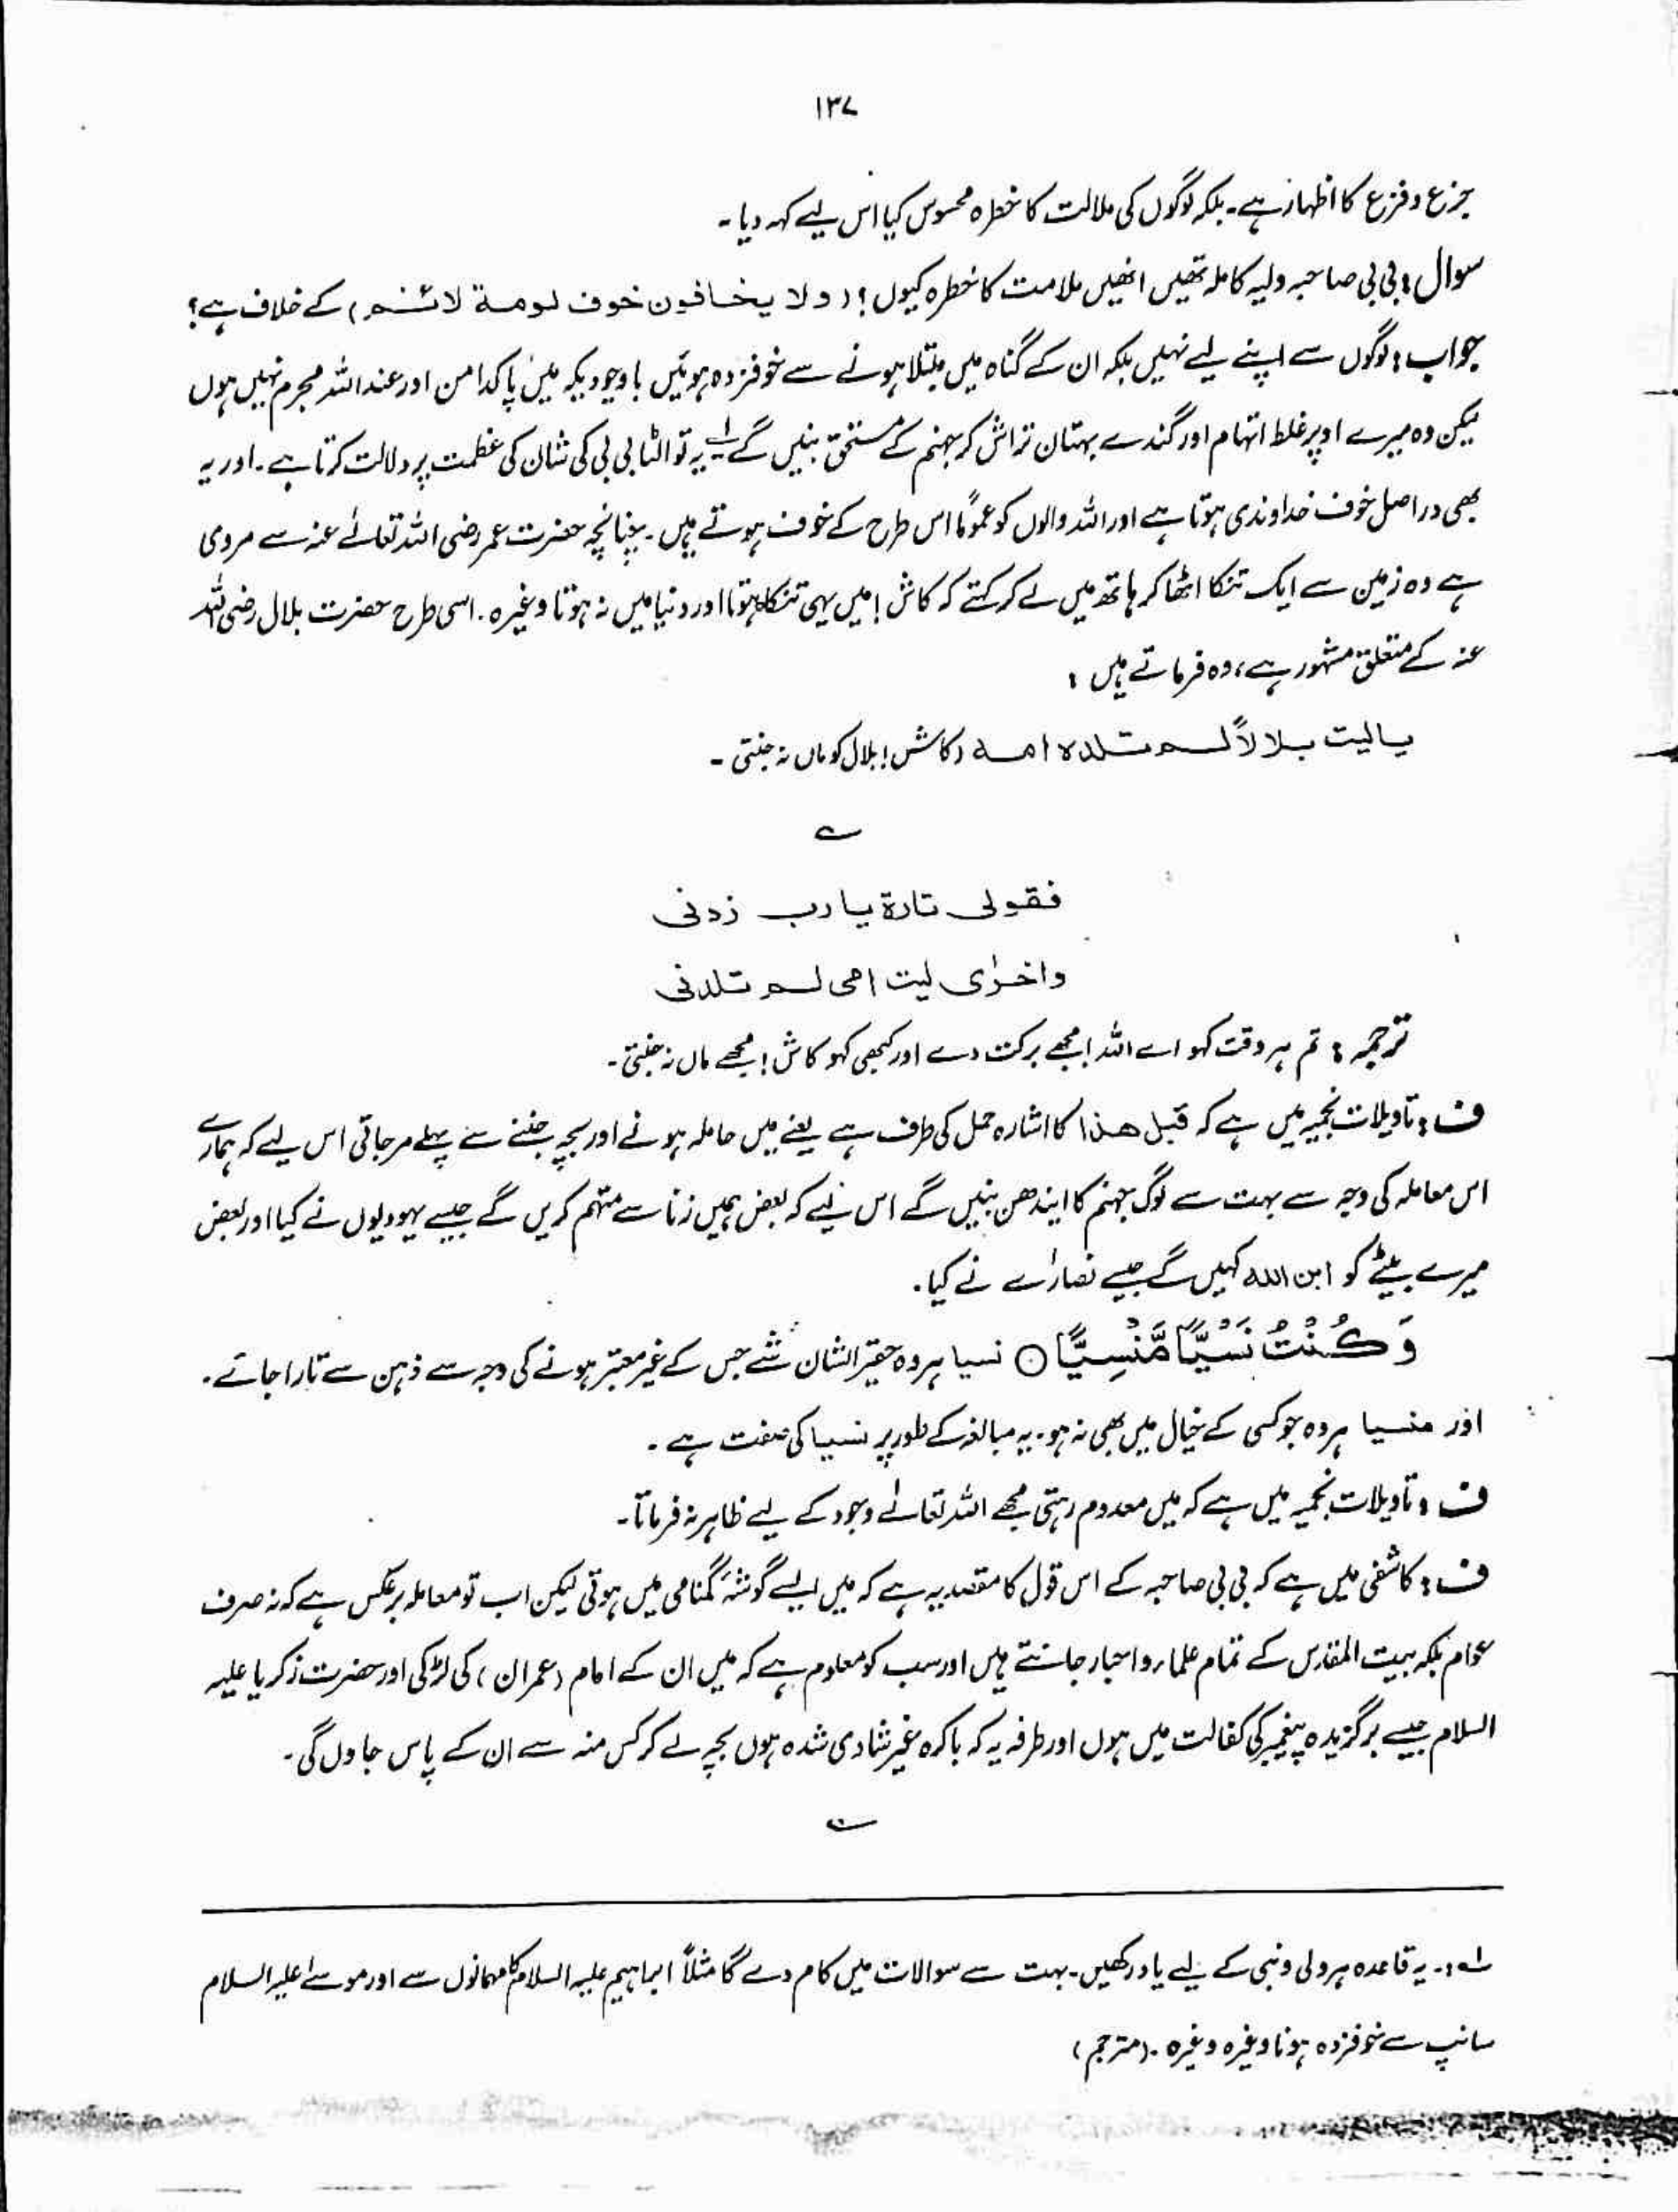 ۱۳۷
جزع و فزع کا اظہار ہے۔ بلکہ لوگوں کی ملالت کا خطرہ محسوس کیا اس لیے کہہ دیا۔
سوال: بی بی صاحبہ ولیہ کاملہ تھیں انھیں ملامت کا خطرہ کیوں؟ (ولا یخافون خوف لومة لائم) کے خلاف ہے؟
جواب: لوگوں سے اپنے لیے نہیں بلکہ ان کے گناہ میں مبتلا ہونے سے خوفزدہ ہوئیں باوجودیکہ میں پاکدامن اور عنداللہ مجرم نہیں ہوں
لیکن وہ میرے اوپر غلط اتہام اور گندے بہتان تراش کر جہنم کے مستحق بنیں گے ؎۱ یہ تو الٹا بی بی کی شان کی عظمت پر دلالت کرتا ہے۔ اور یہ
بھی دراصل خوف خداوندی ہوتا ہے اور اللہ والوں کو عموماً اس طرح کے خوف ہوتے ہیں۔ چنانچہ حضرت عمر رضی اللہ تعالےٰ عنہ سے مروی
ہے وہ زمین سے ایک تنکا اٹھا کر ہاتھ میں لے کر کہتے کہ کاش! میں یہی تنکا ہوتا اور دنیا میں نہ ہوتا وغیرہ۔ اسی طرح حضرت بلال رضی اللہ
عنہ کے متعلق مشہور ہے، وہ فرماتے ہیں:
یالیت بلالاً لم تلده امه (کاش! بلال کو ماں نہ جنتی۔
؎
فقولی تارة یا رب زدنی
واخرٰی لیت امی لم تلدنی
ترجمہ: تم ہر وقت کہو اے اللہ! مجھے برکت دے اور کبھی کہو کاش! مجھے ماں نہ جنتی۔
ف: تاویلات نجمیہ میں ہے کہ قبل هذا کا اشارہ حمل کی طرف ہے یعنے میں حاملہ ہونے اور بچہ جننے سے پہلے مر جاتی اس لیے کہ ہمارے
اس معاملہ کی وجہ سے بہت سے لوگ جہنم کا ایندھن بنیں گے اس لیے کہ بعض ہمیں زنا سے متہم کریں گے جیسے یہودیوں نے کیا اور بعض
میرے بیٹے کو ابن الله کہیں گے جیسے نصارٰے نے کیا۔
وَكُنْتُ نَسْيًا مَّنْسِيًّا ○ نسیا ہر وہ حقیر الشان شے جس کے غیر معتبر ہونے کی وجہ سے ذہن سے اتارا جائے۔
اور منسیا ہر وہ جو کسی کے خیال میں بھی نہ ہو۔ یہ مبالغہ کے طور پر نسیا کی صفت ہے۔
ف: تاویلات نجمیہ میں ہے کہ میں معدوم رہتی مجھے اللہ تعالےٰ وجود کے لیے ظاہر نہ فرماتا۔
ف: کاشفی میں ہے کہ بی بی صاحبہ کے اس قول کا مقصد یہ ہے کہ میں ایسے گوشۂ گمنامی میں ہوتی لیکن اب تو معاملہ برعکس ہے کہ نہ صرف
عوام بلکہ بیت المقدس کے تمام علماء و احبار جانتے ہیں اور سب کو معلوم ہے کہ میں ان کے امام (عمران) کی لڑکی اور حضرت زکریا علیہ
السلام جیسے برگزیدہ پیغمبر کی کفالت میں ہوں اور طرفہ یہ کہ باکرہ غیر شادی شدہ ہوں بچہ لے کر کس منہ سے ان کے پاس جاوں گی۔
؎۱:۔ یہ قاعدہ ہر ولی و نبی کے لیے یاد رکھیں۔ بہت سے سوالات میں کام دے گا مثلاً ابراہیم علیہ السلام کا مہمانوں سے اور موسےٰ علیہ السلام
سانپ سے خوفزدہ ہونا وغیرہ وغیرہ۔ (مترجم)